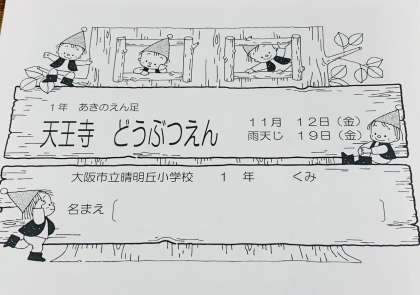 1年 あきのえん足
天王寺 どうぶつえん
11月 12日(金)
雨天じ 19日(金)
大阪市立晴明丘小学校 1 年 くみ
名まえ